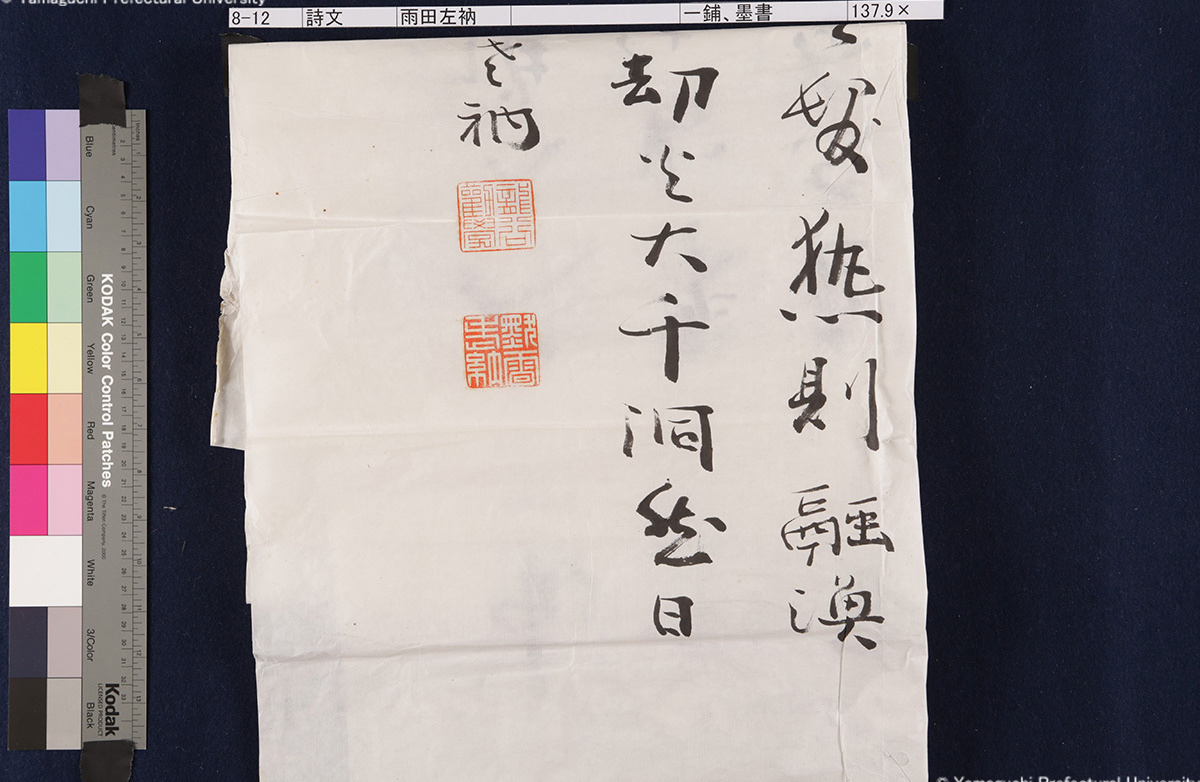 © Yamaguchi Prefectural University
8-12 詩文 雨田左衲 一鋪、墨書 137.9×
熱則融渙
劫炎大千洞然日
老衲
KODAK Color Control Patches
© The Tiffen Company, 2000
Blue
Cyan
Green
Yellow
Red
Magenta
White
3/Color
Black
Kodak
LICENSED PRODUCT
© Yamaguchi Prefectural University